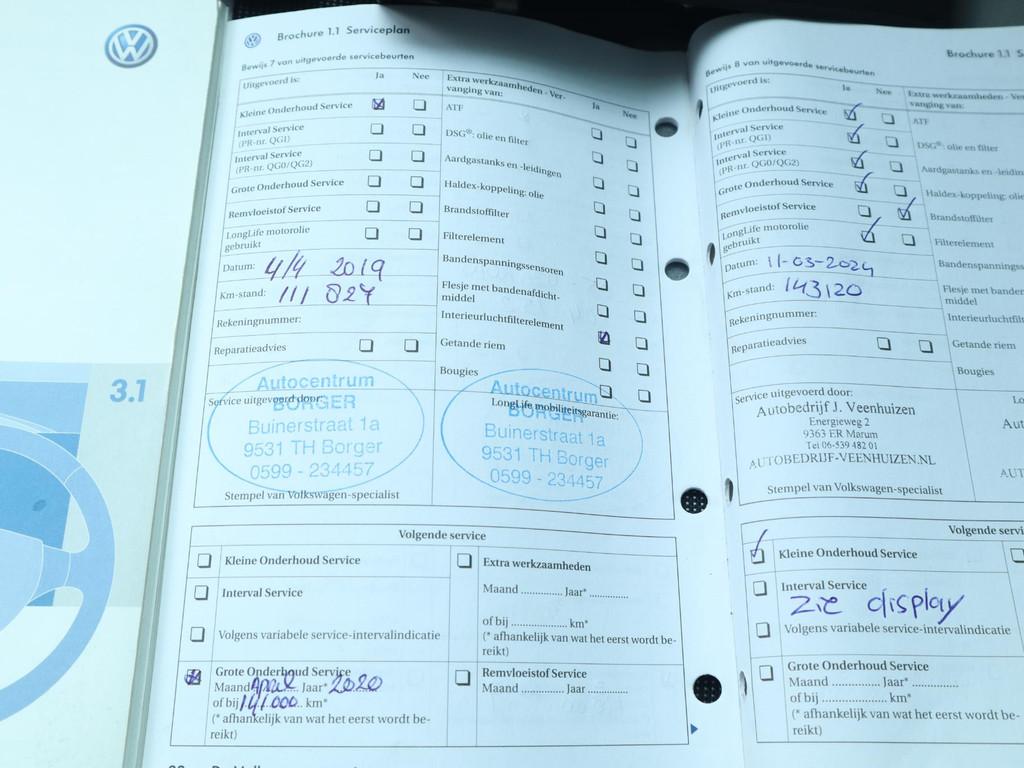 Brochure 1.1 Serviceplan
Bewijs 7 van uitgevoerde servicebeurten
Uitgevoerd is: Ja Nee
Kleine Onderhoud Service
Interval Service
(PR-nr. QG1)
Interval Service
(PR-nr. QG0/QG2)
Grote Onderhoud Service
Remvloeistof Service
LongLife motorolie
gebruikt
Datum: 4/4 2019
Km-stand: 111 827
Rekeningnummer:
Reparatieadvies
Extra werkzaamheden - Ver-
vanging van: Ja Nee
ATF
DSG®: olie en filter
Aardgastanks en -leidingen
Haldex-koppeling: olie
Brandstoffilter
Filterelement
Bandenspanningssensoren
Flesje met bandenafdicht-
middel
Interieurluchtfilterelement
Getande riem
Bougies
Service uitgevoerd door:
Autocentrum
BORGER
Buinerstraat 1a
9531 TH Borger
0599 - 234457
Stempel van Volkswagen-specialist
LongLife mobiliteitsgarantie:
Autocentrum
BORGER
Buinerstraat 1a
9531 TH Borger
0599 - 234457
Volgende service
Kleine Onderhoud Service
Interval Service
Volgens variabele service-intervalindicatie
Grote Onderhoud Service
Maand April Jaar* 2020
of bij 141.000 km*
(* afhankelijk van wat het eerst wordt be-
reikt)
Extra werkzaamheden
Maand .............. Jaar* ..............
of bij .................... km*
(* afhankelijk van wat het eerst wordt be-
reikt)
Remvloeistof Service
Maand .............. Jaar ..............
3.1
Brochure 1.1
Bewijs 8 van uitgevoerde servicebeurten
Uitgevoerd is: Ja Nee
Kleine Onderhoud Service
Interval Service
(PR-nr. QG1)
Interval Service
(PR-nr. QG0/QG2)
Grote Onderhoud Service
Remvloeistof Service
LongLife motorolie
gebruikt
Datum: 11-03-2024
Km-stand: 143120
Rekeningnummer:
Reparatieadvies
Extra werkzaamheden - Ver
vanging van:
ATF
DSG®: olie en filter
Aardgastanks en -leidingen
Haldex-koppeling: olie
Brandstoffilter
Filterelement
Bandenspannings
Flesje met banden
middel
Interieurluchtfilt
Getande riem
Bougies
Service uitgevoerd door:
Autobedrijf J. Veenhuizen
Energieweg 2
9363 ER Marum
Tel 06-539 482 01
AUTOBEDRIJF-VEENHUIZEN.NL
Stempel van Volkswagen-specialist
Volgende servi
Kleine Onderhoud Service
Interval Service
Zie display
Volgens variabele service-intervalindicatie
Grote Onderhoud Service
Maand .............. Jaar* ..............
of bij .................... km*
(* afhankelijk van wat het eerst wordt be-
reikt)